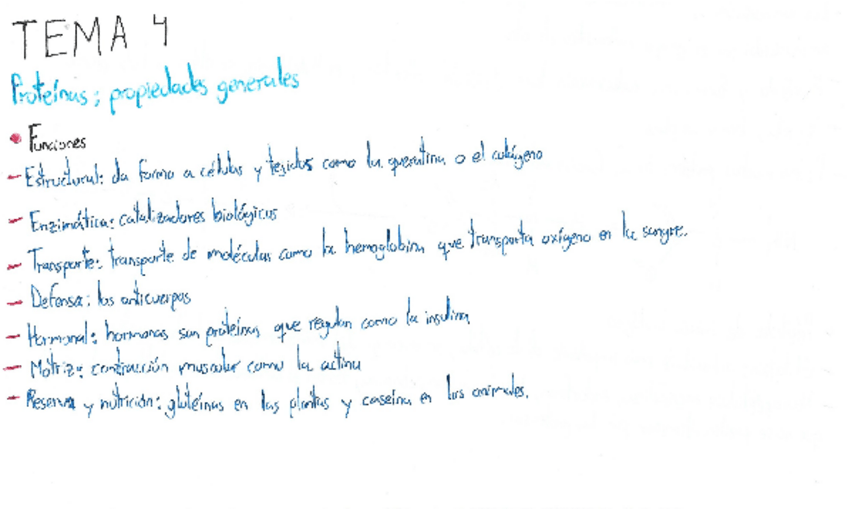 TEMA 4
Proteínas: propiedades generales
• Funciones
- Estructural: da forma a células y tejidos como la queratina o el colágeno
- Enzimática: catalizadores biológicos
- Transporte: transporte de moléculas como la hemoglobina que transporta oxígeno en la sangre.
- Defensa: los anticuerpos
- Hormonal: hormonas son proteínas que regulan como la insulina
- Motriz: contracción muscular como la actina
- Reserva y nutrición: gluteínas en las plantas y caseína en los animales.